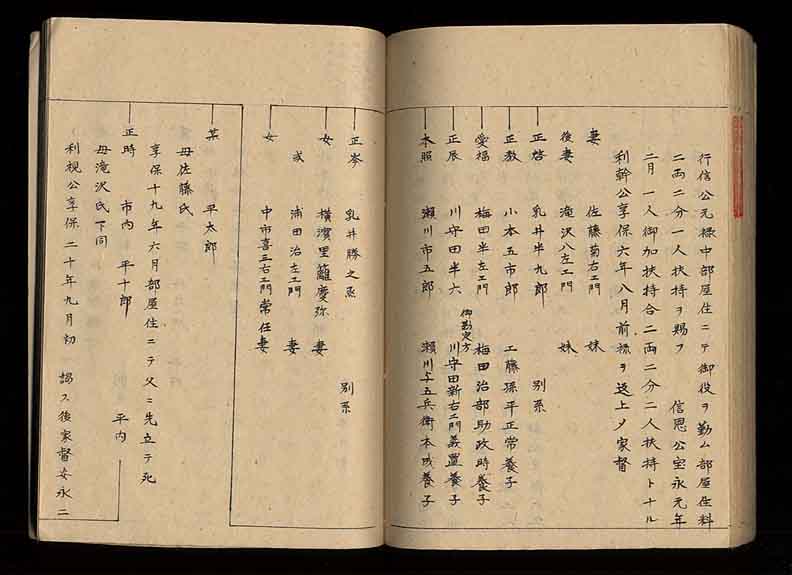 行信公元禄中部屋住ニテ御役ヲ勤ム部屋住料
二両二分一人扶持ヲ賜フ 信恩公宝永元年
二月一人御加扶持合二両二分二人扶持トナル
利幹公享保六年八月前禄ヲ返上〆家督
妻 佐藤菊右エ門 妹
後妻 滝沢八左エ門 妹
正啓 乳井半九郎 別系
正教 小本五市郎 工藤孫平正常養子
愛福 梅田半左エ門 梅田治部助政時養子
正辰 川守田半六 御勘定方 川守田新右エ門義置養子
本照 瀬川市五郎 瀬川与五兵衛本成養子
正岑 乳井勝之丞 別系
女 横濱里籬慶弥 妻
女 或 浦田治左エ門 妻
中市喜三右エ門常任妻
某 平太郎
母佐藤氏
享保十九年六月部屋住ニテ父ニ先立テ死
正時 市内 平十郎 平内
母滝沢氏下同
利視公享保二十年九月初 謁ス後家督安永二